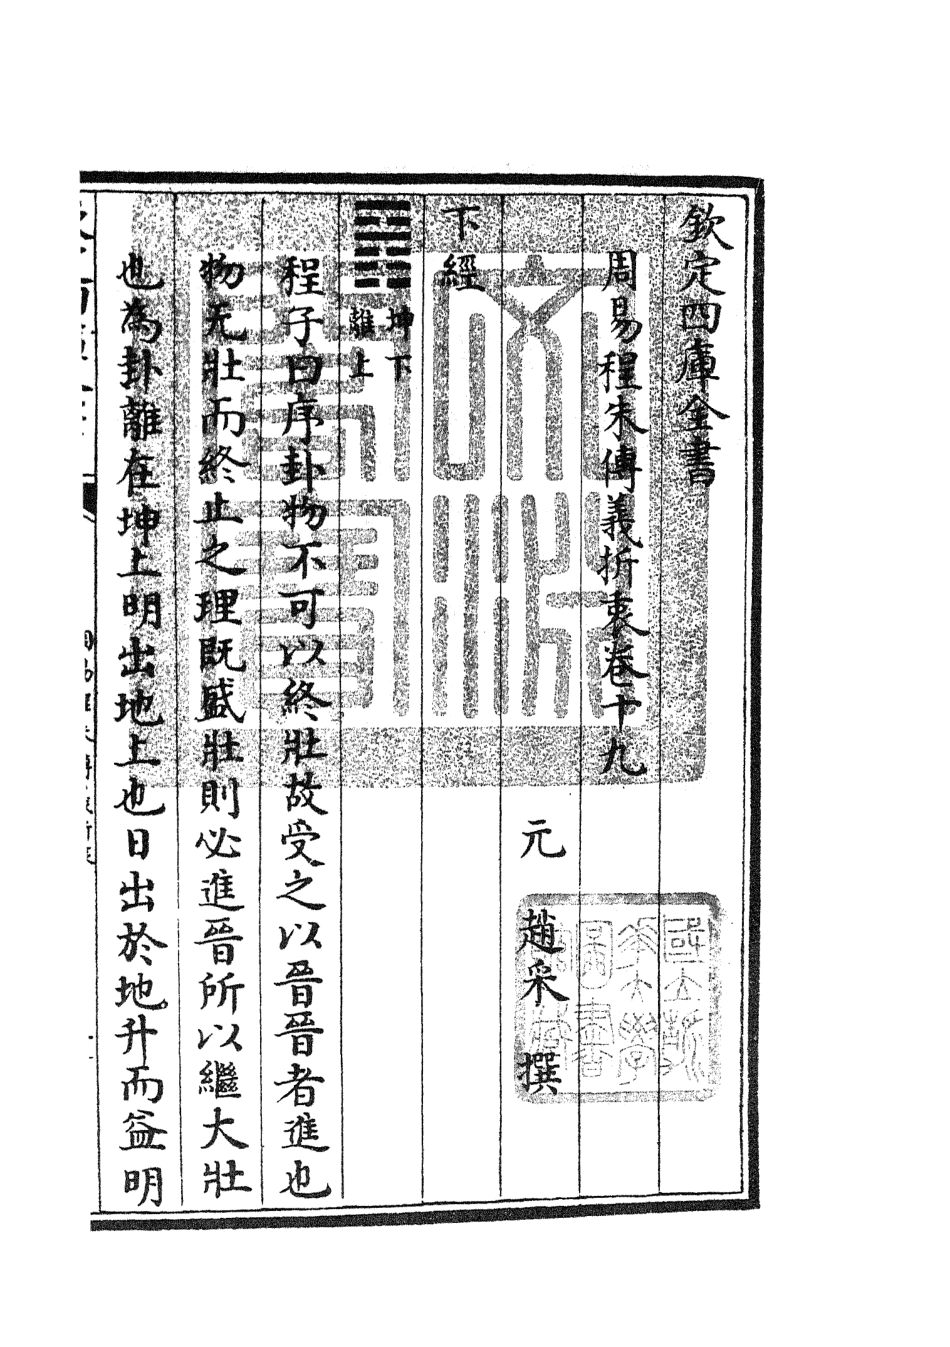 欽定四庫全書
周易程朱傳義折衷卷十九
元 趙采 撰
下經
坤下
離上
程子曰序卦物不可以終壯故受之以晉晉者進也
物无壯而終止之理既盛壯則必進晉所以繼大壯
也為卦離在坤上明出地上也日出於地升而益明